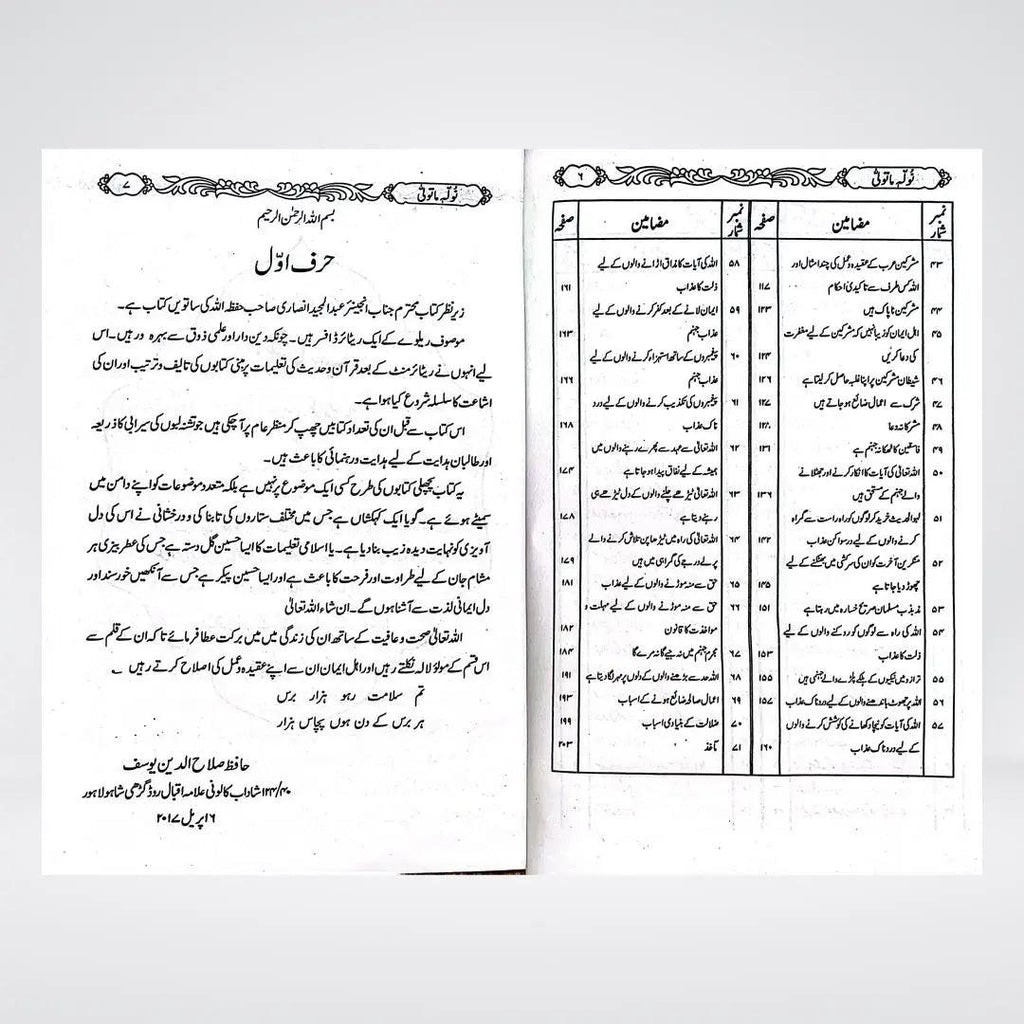 نُوَلِّہٖ مَا تَوَلّٰی
۶
نمبر شمار
مضامین
صفحہ
نمبر شمار
مضامین
صفحہ
۴۳ مشرکین عرب کے عقیدہ و عمل کی چند امثال اور
اللہ کس طرف سے تاکیدی احکام ۱۱۷
۴۴ مشرکین ناپاک ہیں ۱۲۳
۴۵ اہل ایمان کو زیبا نہیں کہ مشرکین کے لیے مغفرت
کی دعا کریں ۱۲۴
۴۶ شیطان مشرکین پر اپنا غلبہ حاصل کر لیتا ہے ۱۲۶
۴۷ شرک سے اعمال ضائع ہو جاتے ہیں ۱۲۷
۴۸ مشرکانہ دعا ۱۲۸
۴۹ فاسقین کا ٹھکانہ جہنم ہے ۱۳۱
۵۰ اللہ تعالیٰ کی آیات کا انکار کرنے اور جھٹلانے
والے جہنم کے مستحق ہیں ۱۳۶
۵۱ لہو الحدیث خرید کر لوگوں کو راہ راست سے گمراہ
کرنے والوں کے لیے درسوا کن عذاب ۱۴۲
۵۲ منکرین آخرت کو ان کی سرکشی میں بھٹکنے کے لیے
چھوڑ دیا جاتا ہے ۱۴۵
۵۳ مذبذب مسلمان صریح خسارہ میں رہتا ہے ۱۵۱
۵۴ اللہ کی راہ سے لوگوں کو روکنے والوں کے لیے
ذلت کا عذاب ۱۵۳
۵۵ ترازو میں نیکیوں کے ہلکے پلڑے والے جہنمی ہیں ۱۵۵
۵۶ اللہ پر جھوٹ باندھنے والوں کے لیے دردناک عذاب ۱۵۷
۵۷ اللہ کی آیات کو نیچا دکھانے کی کوشش کرنے والوں
کے لیے دردناک عذاب ۱۶۰
۵۸ اللہ کی آیات کا مذاق اڑانے والوں کے لیے
ذلت کا عذاب ۱۶۱
۵۹ ایمان لانے کے بعد کفر کرنے والوں کے لیے
عذاب جہنم ۱۶۳
۶۰ پیغمبروں کے ساتھ استہزاء کرنے والوں کے لیے
عذاب جہنم ۱۶۶
۶۱ پیغمبروں کی تکذیب کرنے والوں کے لیے درد
ناک عذاب ۱۶۸
۶۲ اللہ تعالیٰ سے عہد سے پھرے رہنے والوں میں
ہمیشہ کے لیے نفاق پیدا ہو جاتا ہے ۱۷۴
۶۳ اللہ تعالیٰ ٹیڑھے چلنے والوں کے دل ٹیڑھے ہی
رہنے دیتا ہے ۱۷۸
۶۴ اللہ تعالیٰ کی راہ میں ٹیڑھا پن تلاش کرنے والے
پرلے درجے کی گمراہی میں ہیں ۱۷۹
۶۵ حق سے منہ موڑنے والوں کے لیے عذاب ۱۸۱
۶۶ حق سے منہ موڑنے والوں کے لیے مہلت و
مواخذت کا قانون ۱۸۲
۶۷ مجرم جہنم میں نہ جیے گا نہ مرے گا ۱۸۴
۶۸ اللہ حد سے بڑھنے والوں کے دلوں پر مہر لگا دیتا ہے ۱۹۱
۶۹ اعمال صالحہ ضائع ہونے کے اسباب ۱۹۳
۷۰ ضلالت کے بنیادی اسباب ۱۹۹
۷۱ مآخذ ۲۰۳
نُوَلِّہٖ مَا تَوَلّٰی
۷
بسم اللہ الرحمٰن الرحیم
حرف اوّل
زیر نظر کتاب محترم جناب انجینئر عبدالمجید انصاری صاحب حفظہ اللہ کی ساتویں کتاب ہے۔
موصوف ریلوے کے ایک ریٹائرڈ افسر ہیں۔ چونکہ دین دار اور علمی ذوق سے بہرہ ور ہیں۔ اس
لیے انہوں نے ریٹائرمنٹ کے بعد قرآن و حدیث کی تعلیمات پر مبنی کتابوں کی تالیف و ترتیب اور ان کی
اشاعت کا سلسلہ شروع کیا ہوا ہے۔
اس کتاب سے قبل ان کی تعداد کتابیں چھپ کر منظر عام پر آ چکی ہیں جو تشنہ لبوں کی سیرابی کا ذریعہ
اور طالبان ہدایت کے لیے ہدایت و رہنمائی کا باعث ہیں۔
یہ کتاب پچھلی کتابوں کی طرح کسی ایک موضوع پر نہیں ہے بلکہ متعدد موضوعات کو اپنے دامن میں
سمیٹے ہوئے ہے۔ گویا ایک کہکشاں ہے جس میں مختلف ستاروں کی تابناکی و درخشانی نے اس کی دل
آویزی کو نہایت دیدہ زیب بنا دیا ہے۔ یا اسلامی تعلیمات کا ایسا حسین گل دستہ ہے جس کی عطر بیزی ہر
مشام جان کے لیے طراوت اور فرحت کا باعث ہے اور ایسا حسین پیکر ہے جس سے آنکھیں خورسند اور
دل ایمانی لذت سے آشنا ہوں گے۔ ان شاء اللہ تعالیٰ
اللہ تعالیٰ صحت و عافیت کے ساتھ ان کی زندگی میں میں برکت عطا فرمائے تاکہ ان کے قلم سے
اس قسم کے مولؤ لالہ نکلتے رہیں اور اہل ایمان ان سے اپنے عقیدہ و عمل کی اصلاح کرتے رہیں ۔
تم سلامت رہو ہزار برس
ہر برس کے دن ہوں پچاس ہزار
حافظ صلاح الدین یوسف
۱۲۴/۴۰ شاداب کالونی علامہ اقبال روڈ گڑھی شاہو لاہور
۱۶ اپریل ۲۰۱۷